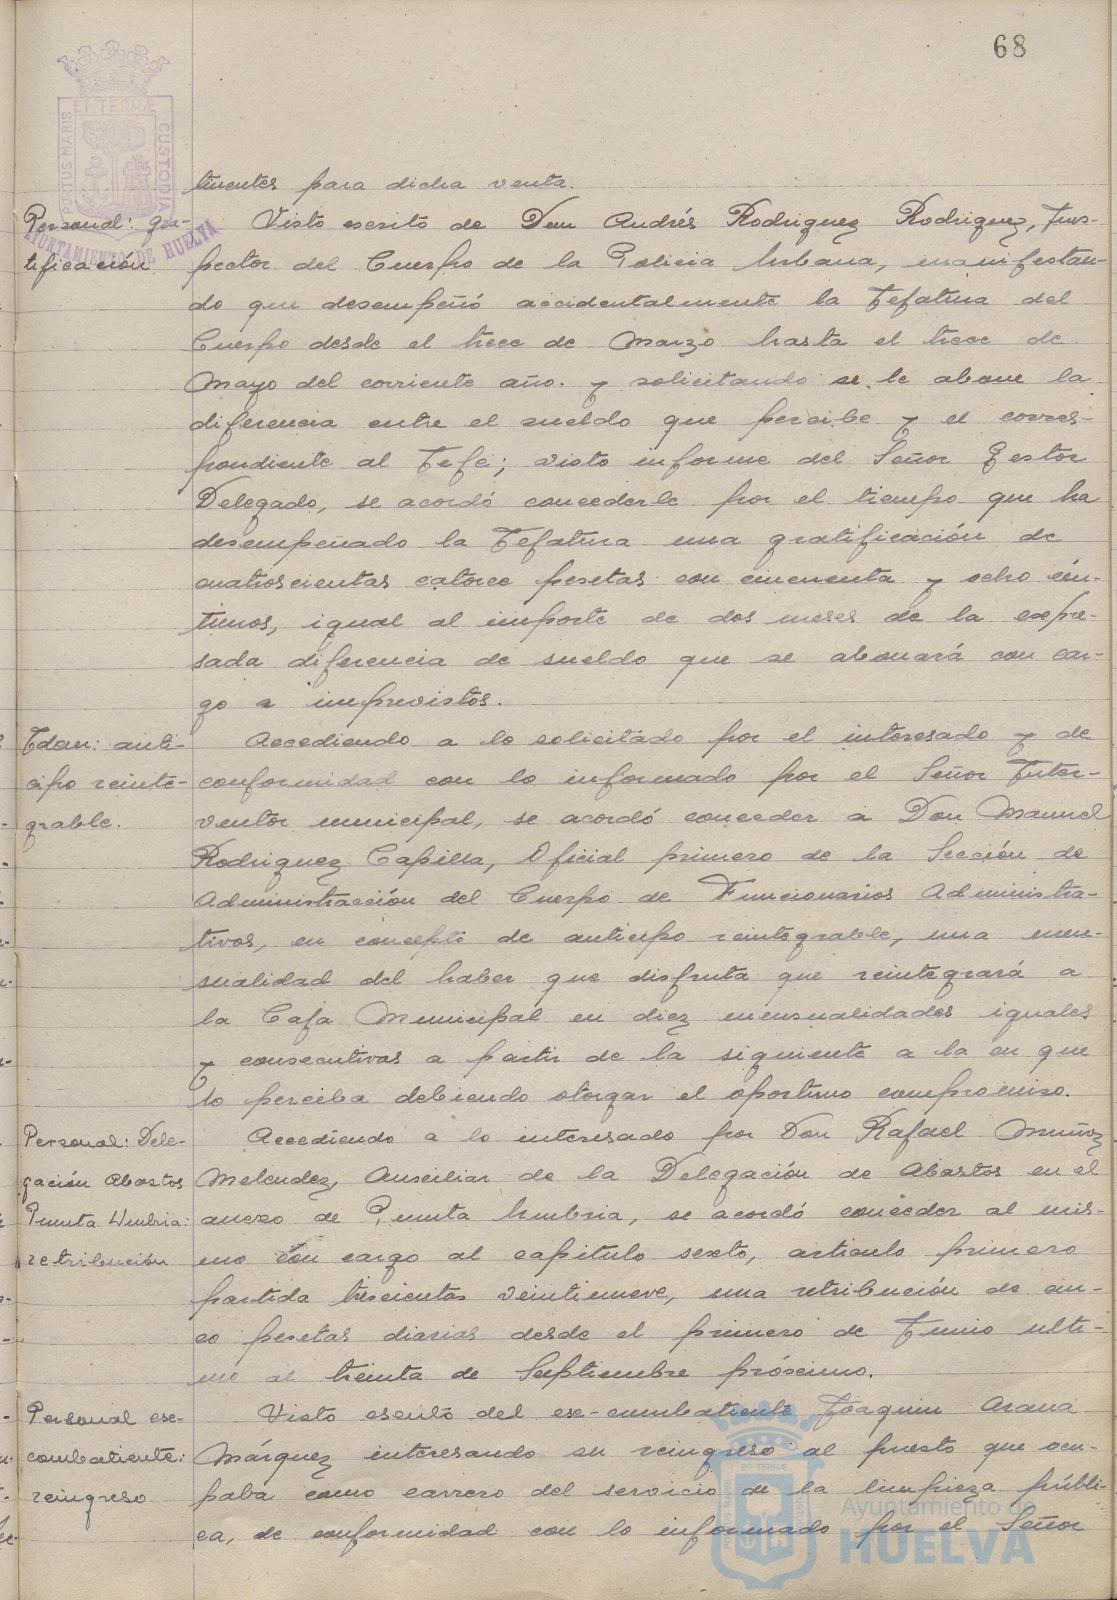 68
PORTUS MARIS ET TERRÆ CUSTODIA
AYUNTAMIENTO DE HUELVA
tinentes para dicha venta.
Personal: gra-
tificación
Visto escrito de Don Andrés Rodriguez Rodriguez, Ins-
pector del Cuerpo de la Policia Urbana, manifestan-
do que desempeñó accidentalmente la Jefatura del
Cuerpo desde el trece de Marzo hasta el trece de
Mayo del corriente año. y solicitando se le abone la
diferencia entre el sueldo que percibe y el corres-
pondiente al Jefe; visto informe del Señor Gestor
Delegado, se acordó concederle por el tiempo que ha
desempeñado la Jefatura una gratificación de
cuatroscientas catorce pesetas con cincuenta y ocho cén-
timos, igual al importe de dos meses de la expre-
sada diferencia de sueldo que se abonará con car-
go a imprevistos.
Idem: anti-
cipo reinte-
grable.
Accediendo a lo solicitado por el interesado y de
conformidad con lo informado por el Señor Inter-
ventor municipal, se acordó conceder a Don Manuel
Rodriguez Capilla, Oficial primero de la Sección de
Administracción del Cuerpo de Funcionarios Administra-
tivos, en concepto de anticipo reintegrable, una men-
sualidad del haber que disfruta que reintegrará a
la Caja Municipal en diez mensualidades iguales
y consecutivas a partir de la siguiente a la en que
lo perciba debiendo otorgar el oportuno compromiso.
Personal: Dele-
gación Abastos
Punta Umbria:
retribución
Accediendo a lo interesado por Don Rafael Muñoz
Melendez, Auxiliar de la Delegación de Abastos en el
anexo de Punta Umbria, se acordó conceder al mis-
mo con cargo al capitulo sexto, articulo primero
partida trescientas veintinueve, una retribución de cin-
co pesetas diarias desde el primero de Junio ulti-
mo al treinta de Septiembre próximo.
Personal exe-
combatiente:
reingreso
Visto escrito del exe-combatiente Joaquin Arana
Márquez interesando su reingreso al puesto que ocu-
paba como carrero del servicio de la limpieza públi-
ca, de conformidad con lo informado por el Señor
Ayuntamiento de
HUELVA